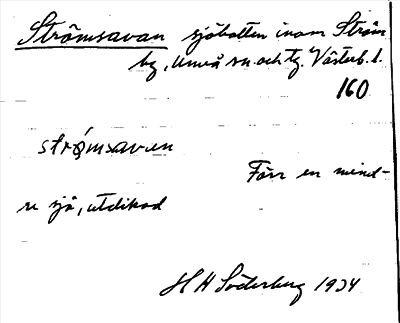 Strömsavan sjöbotten inom Ström
by, Umeå sn. och tg. Västerb. l.
160
strǫ́msavɐn
Förr en mind-
re sjö, utdikad
H H Söderberg 1934